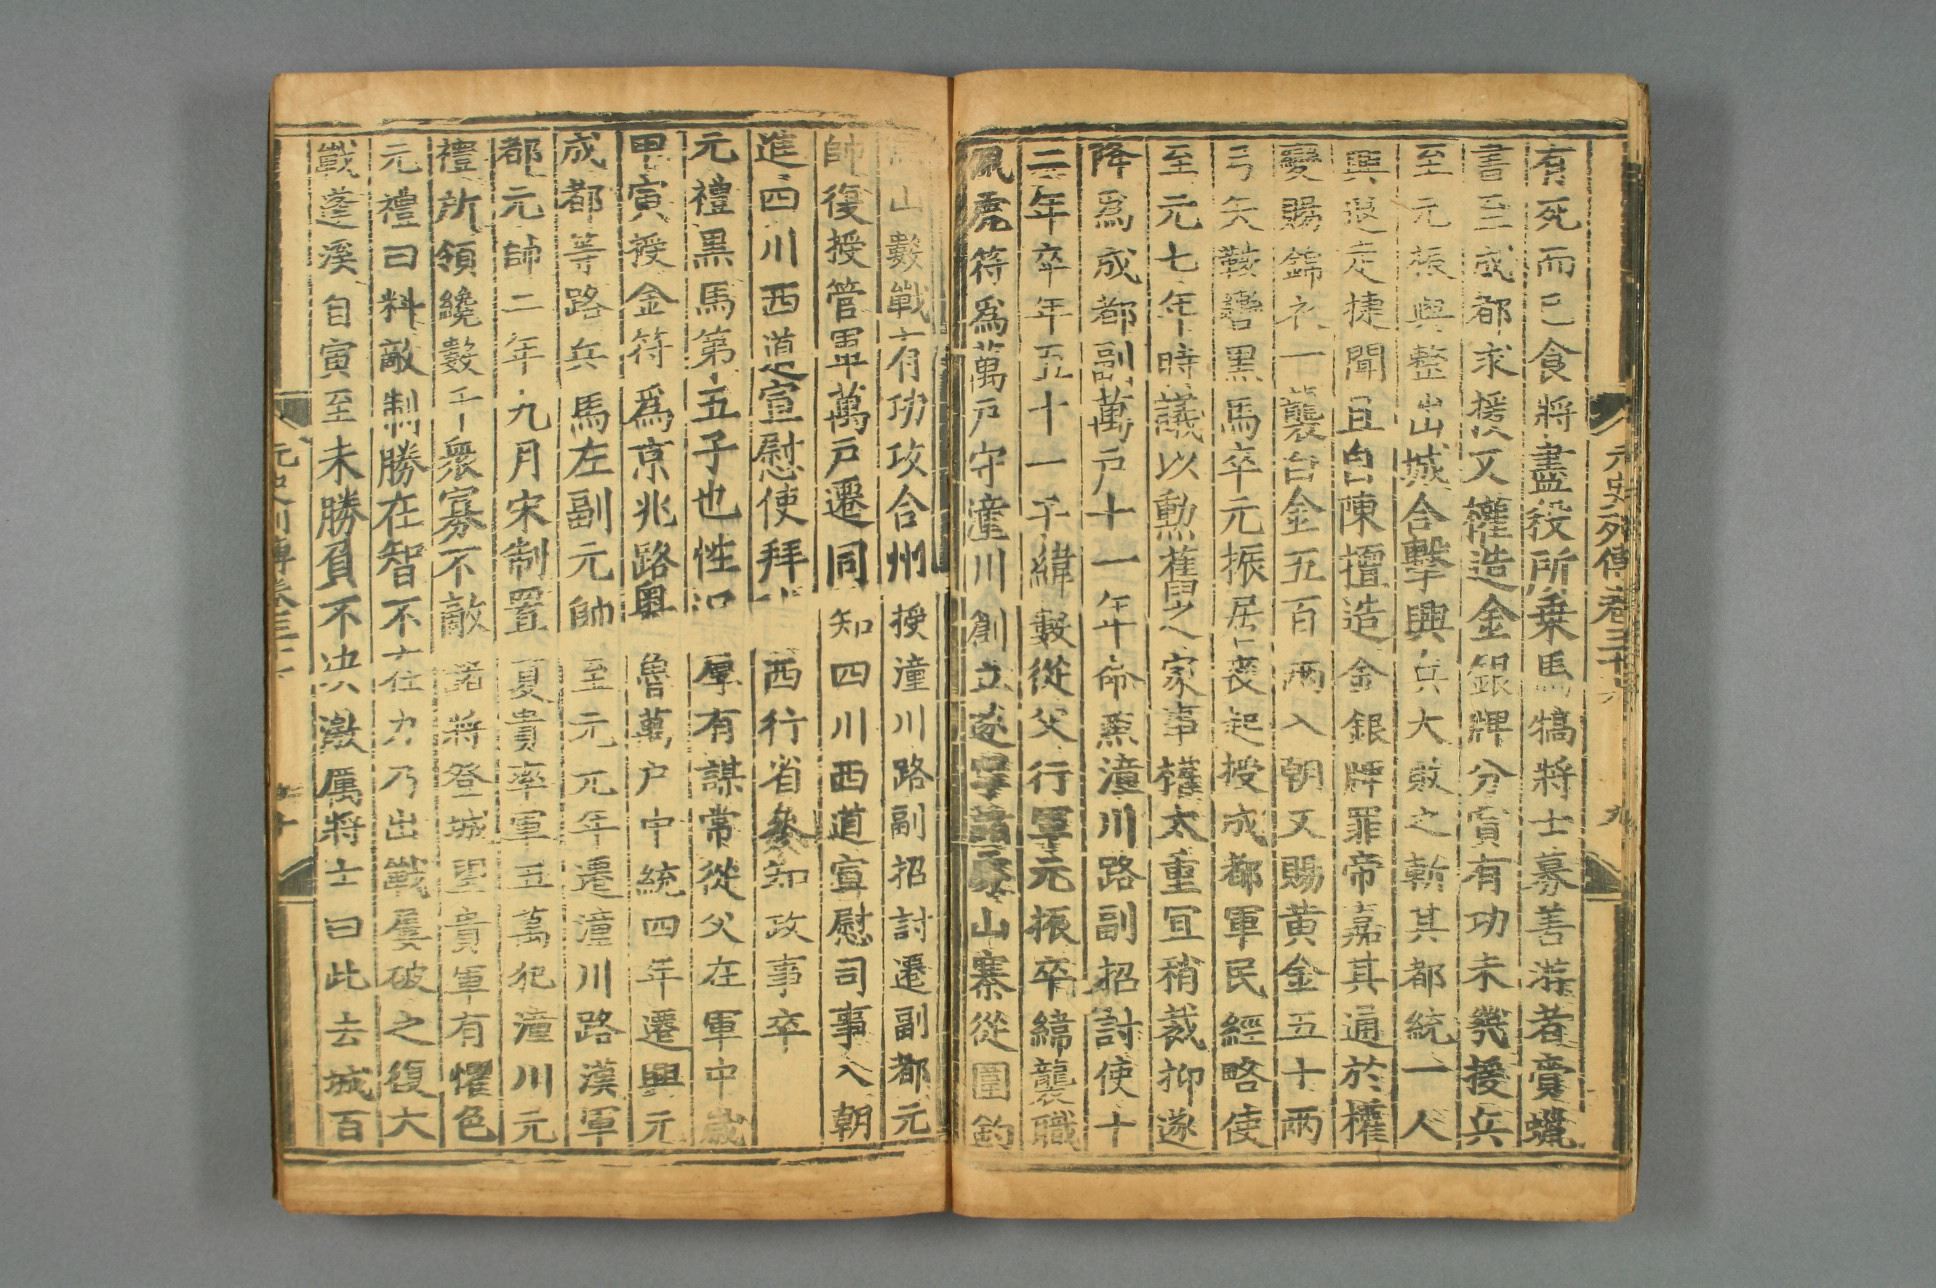 元史列傳卷三十六
九
有死而已食將盡殺所乗馬犒將士募善游者賫蠟
書至成都求援又權造金銀牌分賞有功未㡬援兵
至元振與整出城合撃興兵大敗之斬其都統一人
興退走捷聞且自陳擅造金銀牌罪帝嘉其通於權
變賜錦衣一襲白金五百兩入朝又賜黄金五十兩
弓矢鞍轡黑馬卒元振居喪起授成都軍民經略使
至元七年時議以勲舊之家事權太重冝稍裁抑遂
降爲成都副萬戸十一年命兼潼川路副招討使十
二年卒年五十一子緯數從父行軍元振卒緯襲職
佩虎符爲萬戸守潼川創立遂寧諸山寨從圍釣
山數戰有功攻合州授潼川路副招討遷副都元
帥復授管軍萬戸遷同知四川西道宣慰司事入朝
進四川西道宣慰使拜 西行省參知政事卒
元禮黑馬第五子也性 厚有謀常從父在軍中歳
甲寅授金符爲京兆路奥魯萬户中統四年遷興元
成都等路兵馬左副元帥至元元年遷潼川路漢軍
都元帥二年九月宋制置夏貴率軍五萬犯潼川元
禮所領纔數千衆寡不敵諸將登城望貴軍有懼色
元禮曰料敵制勝在智不在力乃出戰屢破之復大
戰蓬溪自寅至未勝負不决激厲將士曰此去城百
元史列傳卷三十
十